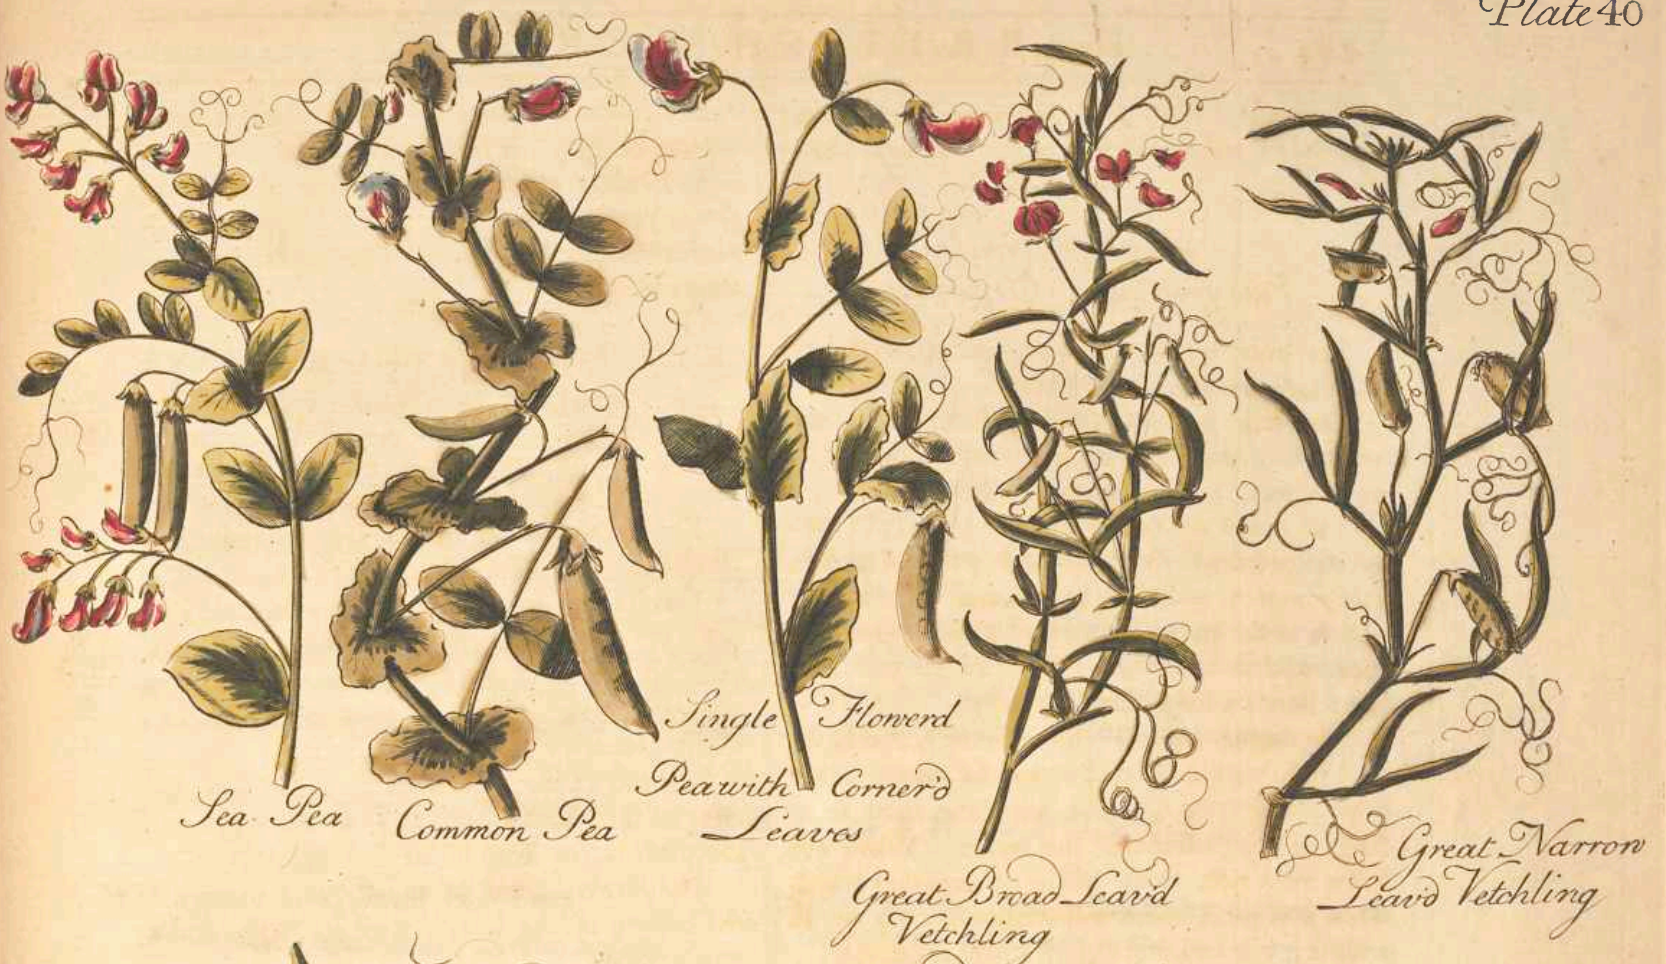 Plate 40
Sea Pea
Common Pea
Single Flowerd
Pea with Corner'd
Leaves
Great Broad Leav'd
Vetchling
Great Narrow
Leav'd Vetchling